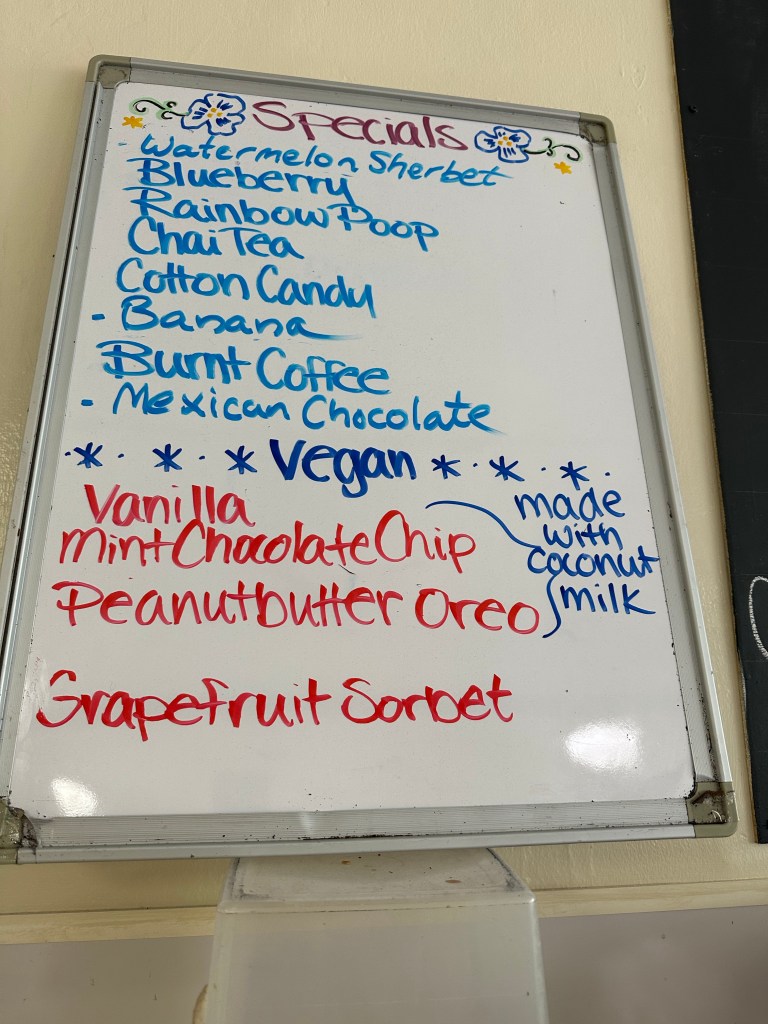 Specials
- Watermelon Sherbet
Blueberry
Rainbow Poop
Chai Tea
Cotton Candy
- Banana
Burnt Coffee
- Mexican Chocolate
* . * . * Vegan * . * . * .
Vanilla
Mint Chocolate Chip
Peanutbutter Oreo
made
with
coconut
milk
Grapefruit Sorbet